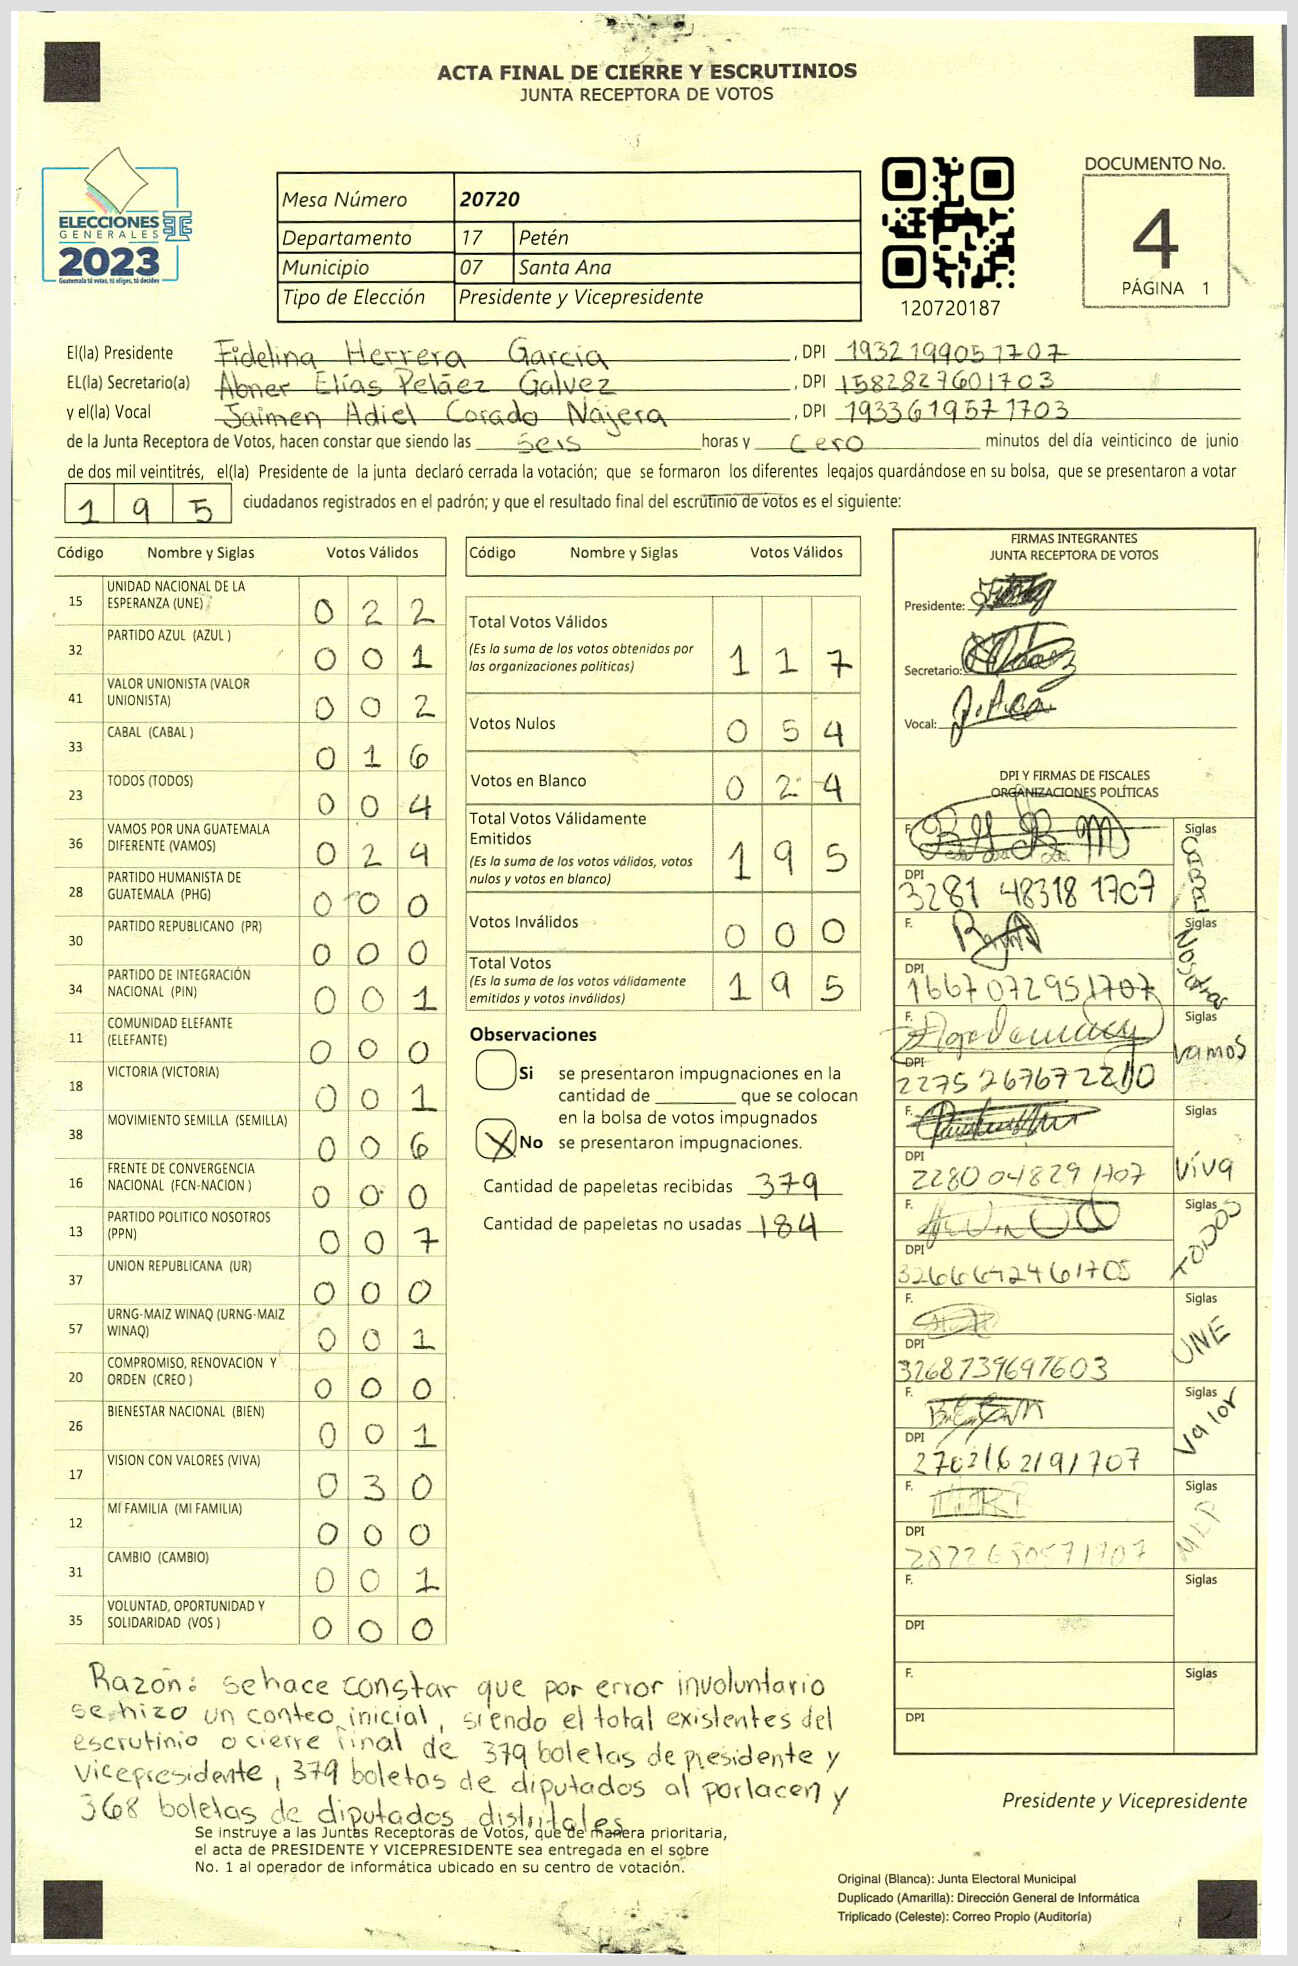 ACTA FINAL DE CIERRE Y ESCRUTINIOS
JUNTA RECEPTORA DE VOTOS
ELECCIONES
GENERALES
2023
Guatemala tú votas, tú eliges, tú decides
Mesa Número 20720
Departamento 17 Petén
Municipio 07 Santa Ana
Tipo de Elección Presidente y Vicepresidente
120720187
DOCUMENTO No.
4
PÁGINA 1
El(la) Presidente Fidelina Herrera Garcia, DPI 1932199051707
EL(la) Secretario(a) Abner Elías Peláez Galvez, DPI 1582827601703
y el(la) Vocal Jaimen Adiel Corado Najera, DPI 1933619571703
de la Junta Receptora de Votos, hacen constar que siendo las seis horas y cero minutos del día veinticinco de junio
de dos mil veintitrés, el(la) Presidente de la junta declaró cerrada la votación; que se formaron los diferentes legajos quardándose en su bolsa, que se presentaron a votar
195 ciudadanos registrados en el padrón; y que el resultado final del escrutinio de votos es el siguiente:
Código Nombre y Siglas Votos Válidos
15 UNIDAD NACIONAL DE LA ESPERANZA (UNE) 022
32 PARTIDO AZUL (AZUL ) 001
41 VALOR UNIONISTA (VALOR UNIONISTA) 002
33 CABAL (CABAL ) 016
23 TODOS (TODOS) 004
36 VAMOS POR UNA GUATEMALA DIFERENTE (VAMOS) 024
28 PARTIDO HUMANISTA DE GUATEMALA (PHG) 000
30 PARTIDO REPUBLICANO (PR) 000
34 PARTIDO DE INTEGRACIÓN NACIONAL (PIN) 001
11 COMUNIDAD ELEFANTE (ELEFANTE) 000
18 VICTORIA (VICTORIA) 001
38 MOVIMIENTO SEMILLA (SEMILLA) 006
16 FRENTE DE CONVERGENCIA NACIONAL (FCN-NACION ) 000
13 PARTIDO POLITICO NOSOTROS (PPN) 007
37 UNION REPUBLICANA (UR) 000
57 URNG-MAIZ WINAQ (URNG-MAIZ WINAQ) 001
20 COMPROMISO, RENOVACION Y ORDEN (CREO ) 000
26 BIENESTAR NACIONAL (BIEN) 001
17 VISION CON VALORES (VIVA) 030
12 MI FAMILIA (MI FAMILIA) 000
31 CAMBIO (CAMBIO) 001
35 VOLUNTAD, OPORTUNIDAD Y SOLIDARIDAD (VOS ) 000
Código Nombre y Siglas Votos Válidos
Total Votos Válidos 117
(Es la suma de los votos obtenidos por
las organizaciones políticas)
Votos Nulos 054
Votos en Blanco 024
Total Votos Válidamente
Emitidos 195
(Es la suma de los votos válidos, votos
nulos y votos en blanco)
Votos Inválidos 000
Total Votos 195
(Es la suma de los votos válidamente
emitidos y votos inválidos)
Observaciones
Si se presentaron impugnaciones en la
cantidad de ________ que se colocan
en la bolsa de votos impugnados
X No se presentaron impugnaciones.
Cantidad de papeletas recibidas 379
Cantidad de papeletas no usadas 184
FIRMAS INTEGRANTES
JUNTA RECEPTORA DE VOTOS
Presidente:
Secretario:
Vocal:
DPI Y FIRMAS DE FISCALES
ORGANIZACIONES POLÍTICAS
F. Siglas CABAL
DPI 3281 48318 1707
F. Siglas Nosotros
DPI 1667072951707
F. Siglas Vamos
DPI 2275267672210
F. Siglas Viva
DPI 2280048291707
F. Siglas TODOS
DPI 3266642461705
F. Siglas UNE
DPI 3268739697603
F. Siglas Valor
DPI 2702162191707
F. Siglas MLP
DPI
F. Siglas
DPI
F. Siglas
DPI
Razón: se hace constar que por error involuntario
se hizo un conteo inicial, siendo el total existentes del
escrutinio o cierre final de 379 boletas de presidente y
vicepresidente, 379 boletas de diputados al parlacen y
368 boletas de diputados distritales
Se instruye a las Juntas Receptoras de Votos, que de manera prioritaria,
el acta de PRESIDENTE Y VICEPRESIDENTE sea entregada en el sobre
No. 1 al operador de informática ubicado en su centro de votación.
Presidente y Vicepresidente
Original (Blanca): Junta Electoral Municipal
Duplicado (Amarilla): Dirección General de Informática
Triplicado (Celeste): Correo Propio (Auditoría)